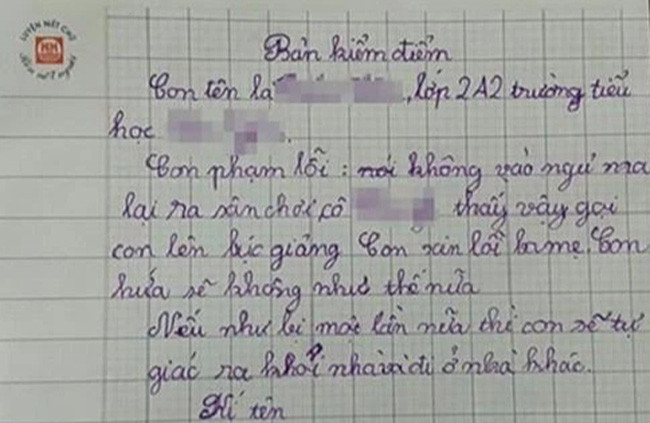 LUYỆN NÉT CHỮ
Rèn nết người
Bản kiểm điểm
Con tên là , lớp 2A2 trường tiểu
học .
Con phạm lỗi : không vào ngủ mà
lại ra sân chơi cô thấy vậy gọi
con lên bục giảng Con xin lỗi ba mẹ. Con
hứa sẽ không như thế nữa
Nếu như bị một lần nữa thì con sẽ tự
giác ra khỏi nhà và đi ở nhà khác.
Kí tên